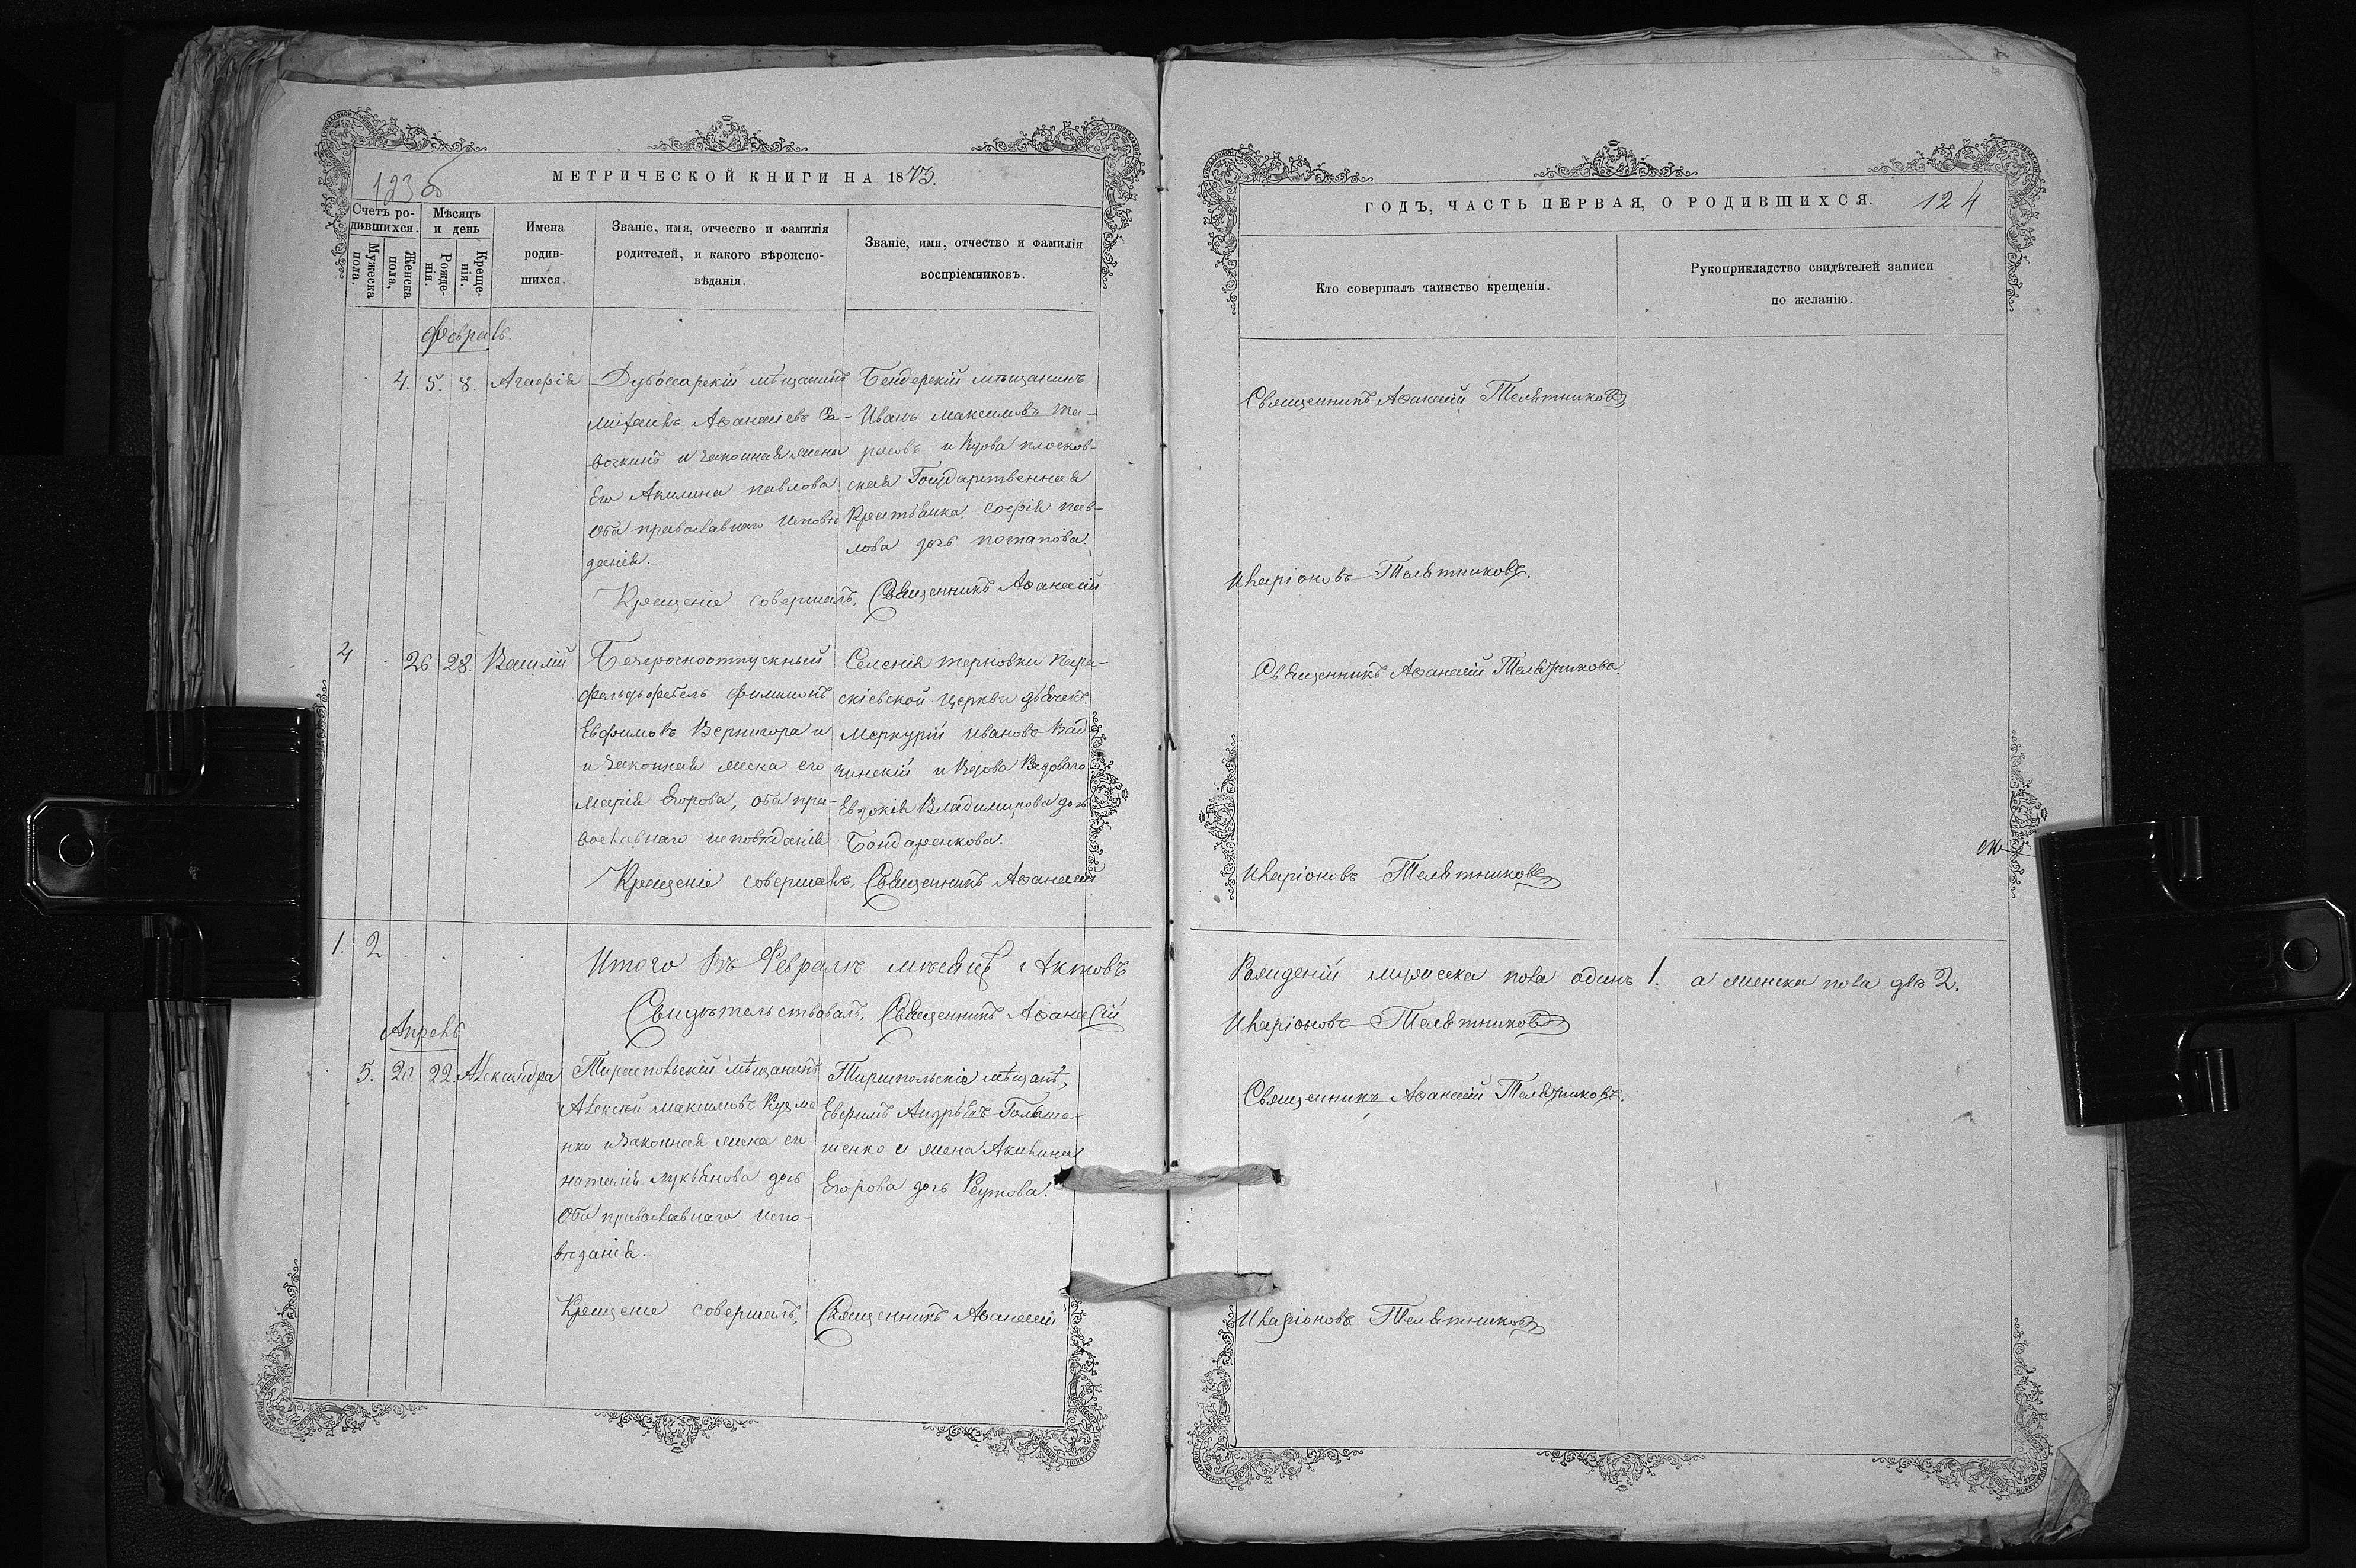 123 об
МЕТРИЧЕСКОЙ КНИГИ НА 1873.
Счетъ ро-
дившихся.
Мужеска
пола.
Женска
пола,
Мѣсяцъ
и день
Рожде-
нія.
Креще-
нія.
Имена
родив-
шихся.
Званіе, имя, отчество и фамилія
родителей, и какого вѣроиспо-
вѣданія.
Званіе, имя, отчество и фамилія
воспріемниковъ.
Февраль
4. 5. 8. Агафія
Дубосарскій мѣщанинъ
Михаилъ Афанасіевъ Са-
вочкинъ и законная жена
Его Акилина Павлова
Оба православнаго исповѣ
данія.
Бендерскій мѣщанинъ
Иванъ Максимовъ Та-
расовъ и Вдова плосков-
ская Государственная
Крестьянка, Софія Пав-
лова дочь Потапова.
Крещеніе совершалъ, Священникъ Афанасій
4 26 28. Василій
Безсрочноотпускный
Фельдфебель Филимонъ
Евфимовъ Вернигора и
и законная жена его
Марія Егорова, оба пра-
вославнаго исповѣданія
Селенія Терновки Пара-
скіевской Церкви дьячекъ
Меркурій Ивановъ
и Вдова
Евдокія Владимирова дочь
Бондаренкова.
Крещеніе совершалъ, Священникъ Афанасій
1. 2
Итого Въ Февралѣ мѣсяцѣ Актовъ
Свидѣтельствовалъ, Священникъ Афанасій
Апрель
5. 20. 22. Александра
Тираспольскій мѣщанинъ
Алексѣй Максимовъ Кузме
нко и законная жена его
Наталія Лукьянова дочь
Оба православнаго испо-
вѣданія.
Тираспольскіе мѣщане,
Евфимъ Андрѣевъ
и жена Акилина
Егорова дочь Реутова.
Крещеніе совершалъ, Священникъ Афанасій
ГОДЪ, ЧАСТЬ ПЕРВАЯ, О РОДИВШИХСЯ.
124
Кто совершалъ таинство крещенія.
Рукоприкладство свидѣтелей записи
по желанію.
Священникъ Афанасій Телятниковъ
Иларіоновъ Телятниковъ.
Священникъ Афанасій Телятниковъ
Иларіоновъ Телятниковъ
Рожденій мужеска пола одинъ 1. а женска пола два 2.
Иларіоновъ Телятниковъ
Священникъ Афанасій Телятниковъ.
Иларіоновъ Телятниковъ